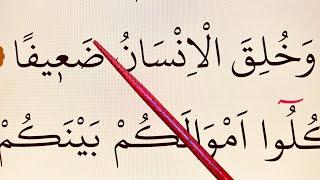 وَخُلِقَ الْاِنْسَانُ ضَعٖيفًا
كُلُٓوا اَمْوَالَكُمْ بَيْنَكُمْ